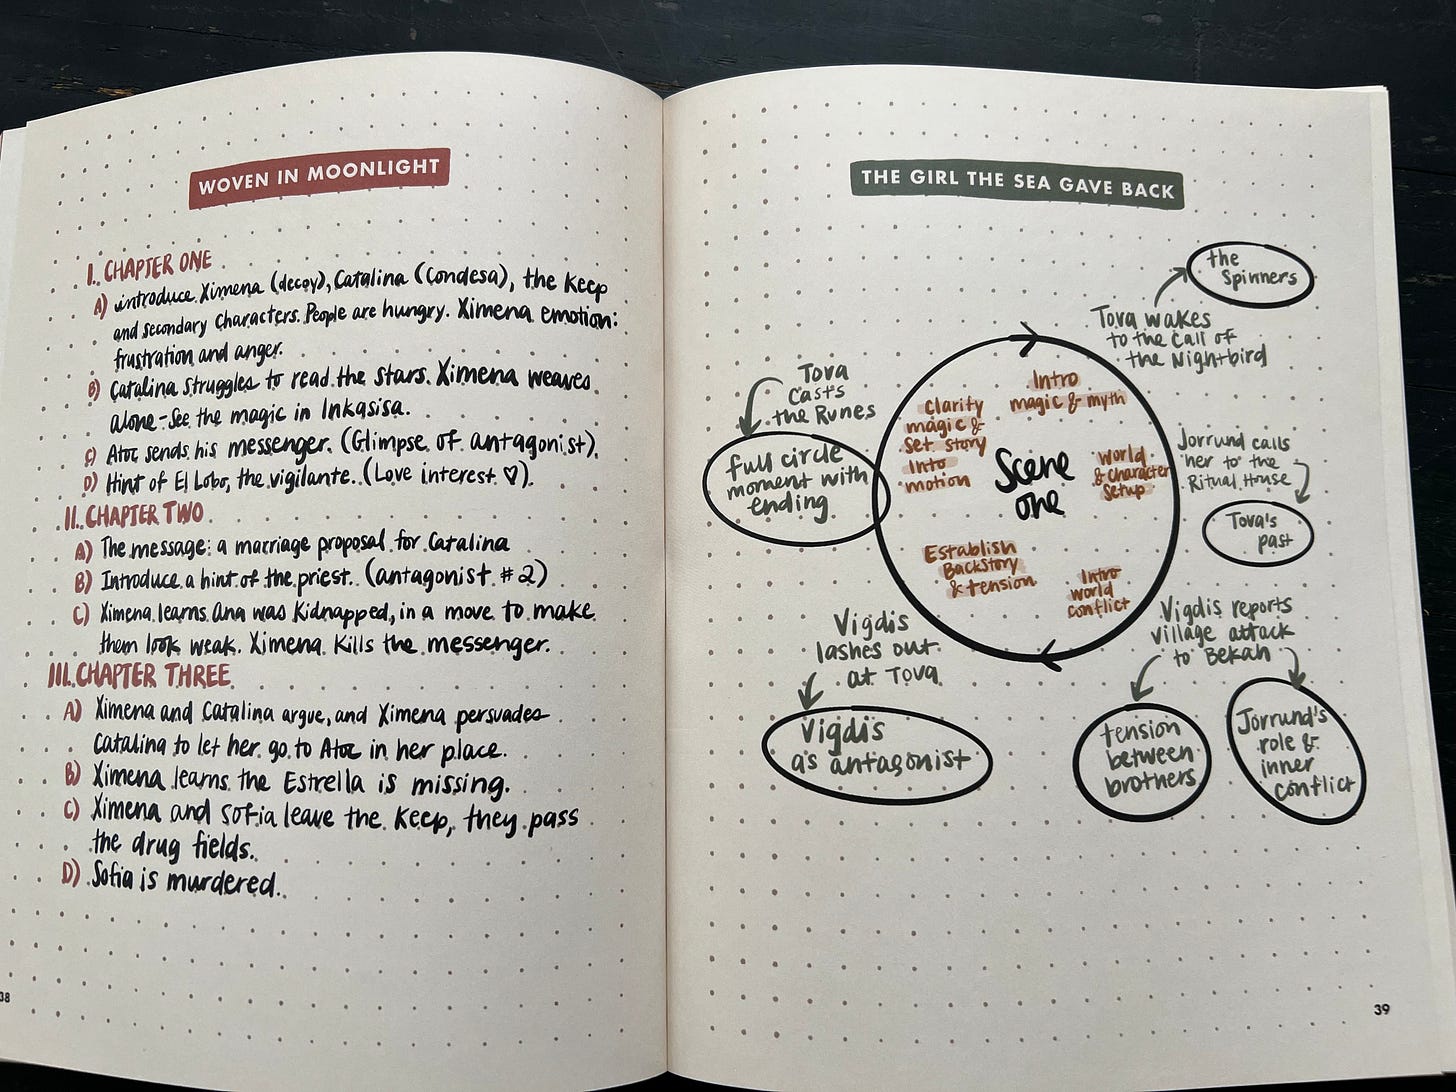 WOVEN IN MOONLIGHT
I. CHAPTER ONE
A) introduce Ximena (decoy), Catalina (Condesa), the Keep
and secondary characters. People are hungry. Ximena emotion:
frustration and anger.
B) Catalina struggles to read the stars. Ximena weaves
alone - See the magic in Inkasisa.
C) Atoc sends his messenger. (Glimpse of antagonist).
D) Hint of El Lobo, the vigilante. (Love interest ♡).
II. CHAPTER TWO
A) The message: a marriage proposal for Catalina
B) Introduce a hint of the priest. (antagonist #2)
C) Ximena learns Ana was Kidnapped, in a move to make
them look weak. Ximena kills the messenger.
III. CHAPTER THREE
A) Ximena and Catalina argue, and Ximena persuades
Catalina to let her go to Atoc in her place.
B) Ximena learns the Estrella is missing.
C) Ximena and Sofia leave the Keep, they pass
the drug fields.
D) Sofia is murdered.
38
THE GIRL THE SEA GAVE BACK
the
Spinners
Tova wakes
to the call of
the Nightbird
Intro
magic & myth
Jorrund calls
her to the
Ritual House
World
& character
setup
Tova's
past
Vigdis reports
village attack
to Bekan
Intro
world
conflict
tension
between
brothers
Jorrund's
role &
inner
conflict
Vigdis
lashes out
at Tova
Establish
Backstory
& tension
Vigdis
as antagonist
Tova
Casts
the Runes
Clarity
magic &
Set story
Into
motion
full circle
moment with
ending
Scene
one
39